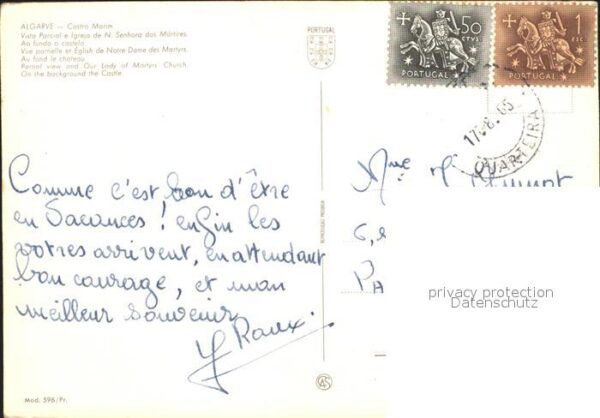 ALGARVE — Castro Marim
Vista Parcial e Igreja de N. Senhora dos Mártires
Ao fundo o castelo
Vue partielle et Eglish de Notre Dame des Martyrs
Au fond le chateau
Parcial view and Our Lady of Martyrs Church
On the background the Castle
PORTUGAL
50
CTVS.
PORTUGAL
1
ESC.
PORTUGAL
QUARTEIRA
Comme c'est bon d'être
en Vacances ! enfin les
vôtres arrivent, en attendant
bon courage, et mon
meilleur souvenir
Y Roux.
Mme
6,
PA
privacy protection
Datenschutz
Mod. 596/Pr.